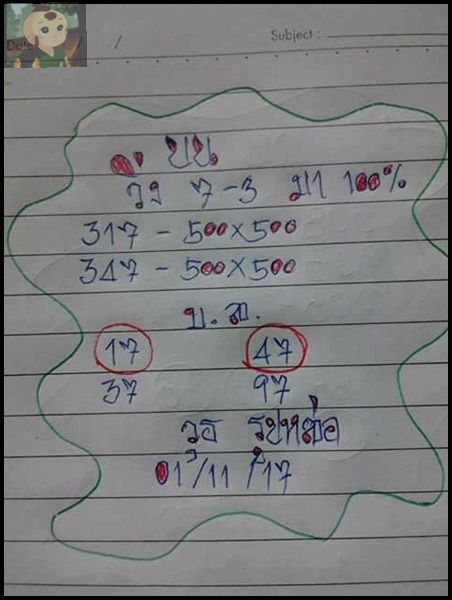 Date
Subject :
บน
วิ่ง 7-3 มา 100%
317 - 500×500
347 - 500×500
บ.ล.
17 47
37 97
รูปหล่อ
01/11/17